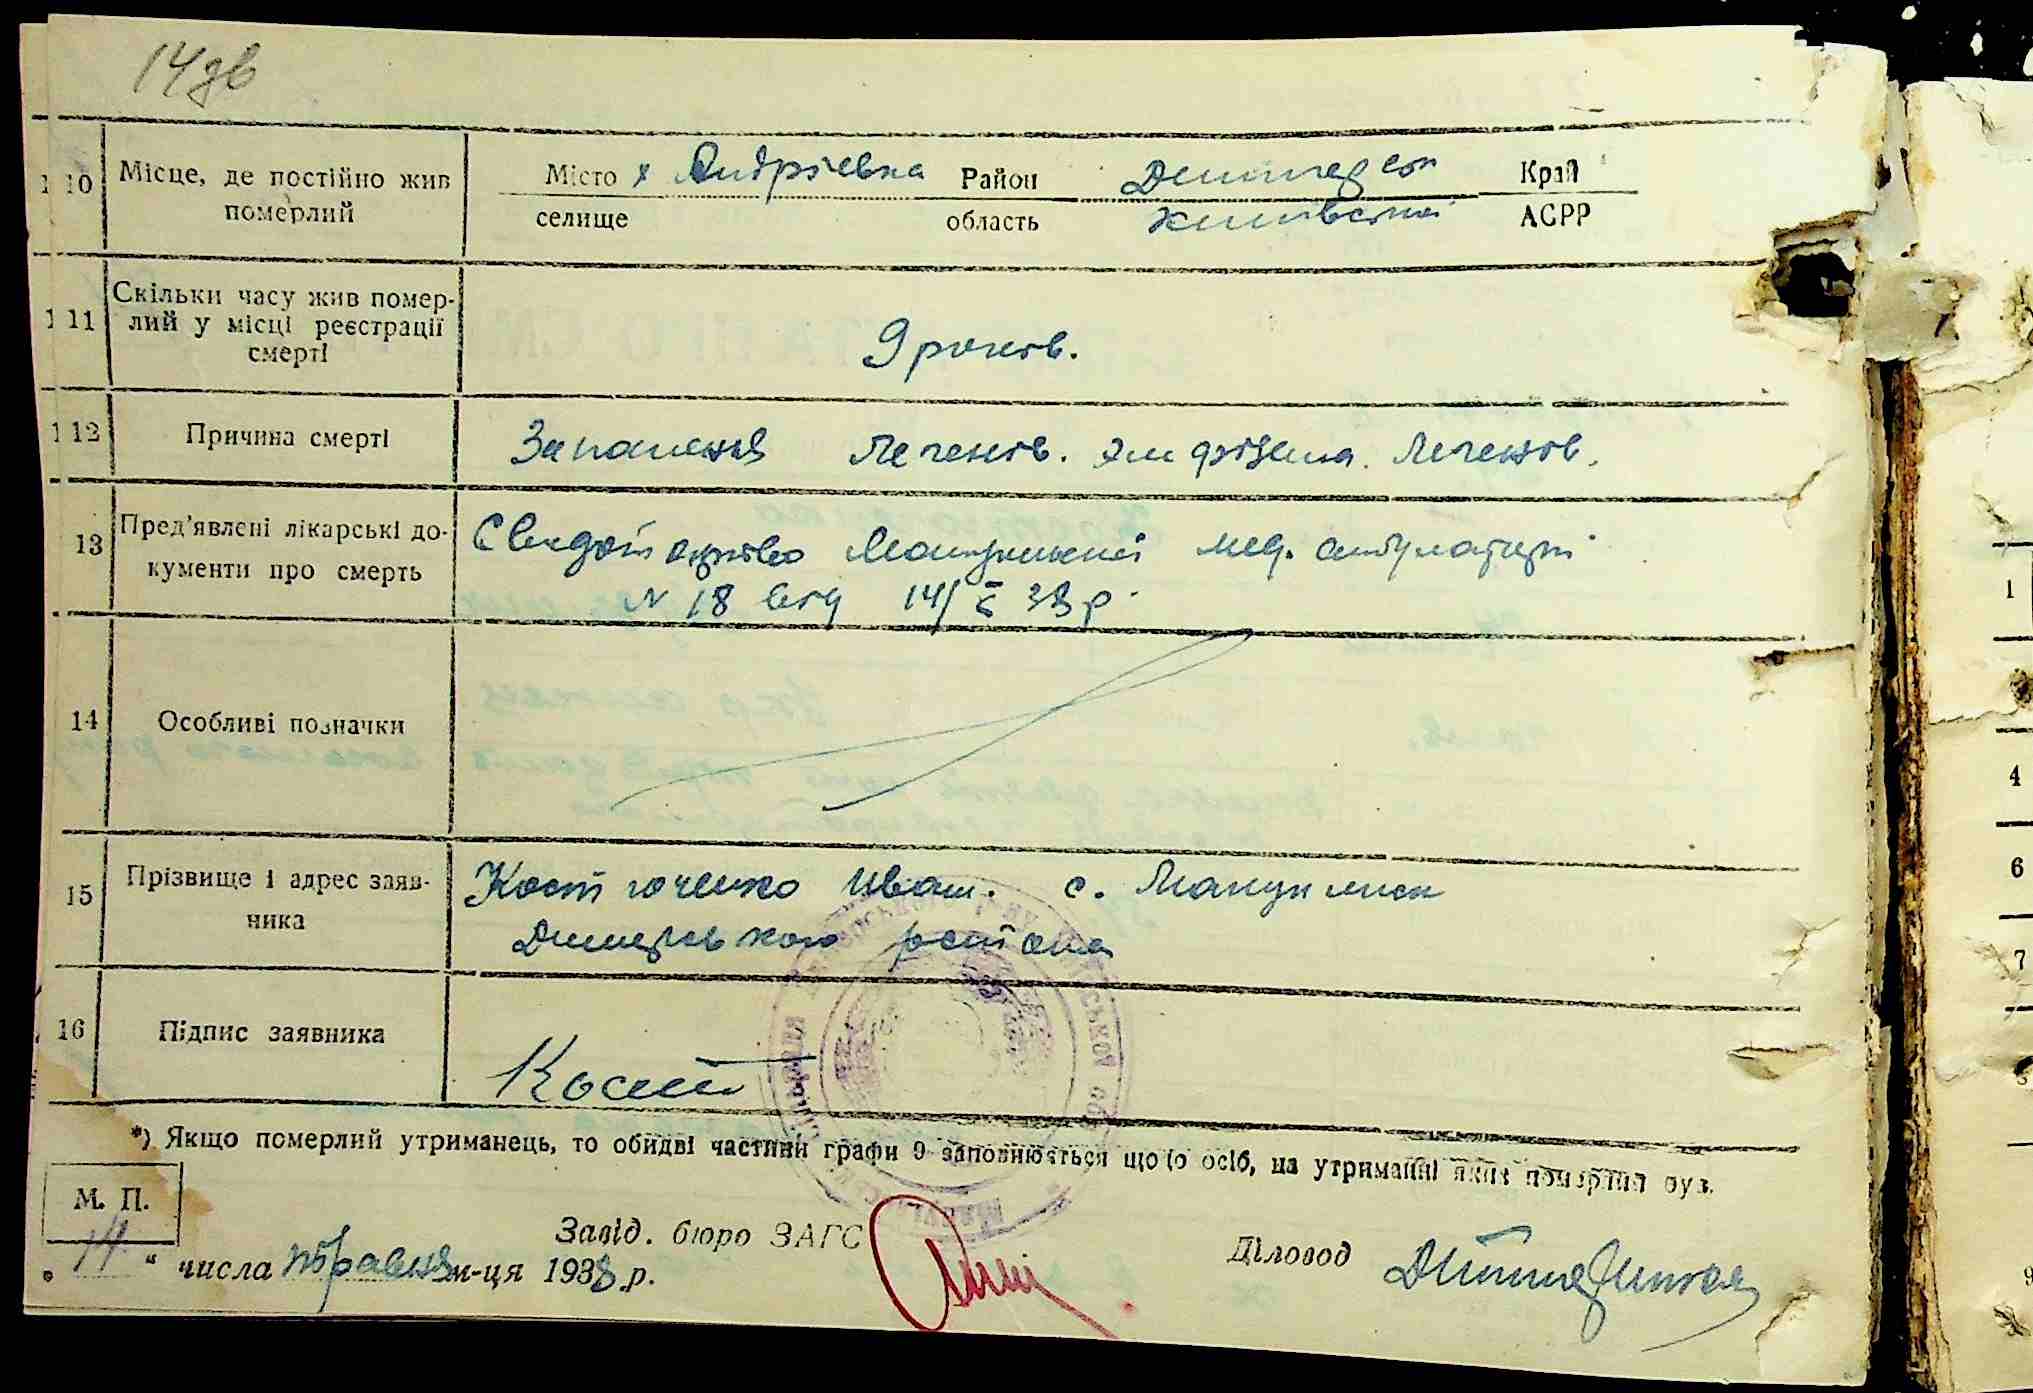 14 дв
10 Місце, де постійно жив померлий
Місто х Андріевка Район Димерсок Край
селище область Київської АСРР
11 Скільки часу жив помер-
лий у місці реєстрації
смерті
9 років.
12 Причина смерті
Запалення легенів. Эмфізема легенів.
13 Пред'явлені лікарські до-
кументи про смерть
Свидоцтво мед. амбулаторії
N 18 від 14/V 38 р.
14 Особливі позначки
15 Прізвище і адрес заяв-
ника
Костюченко Иван. с.
Димерського района
16 Підпис заявника
Кост
*) Якщо померлий утриманець, то обидві частини графи 9 заповнюється що до осіб, на утриманні яких померлий був.
М. П.
Завід. бюро ЗАГС
Діловод
„ 14 “ числа травня м-ця 1938 р.